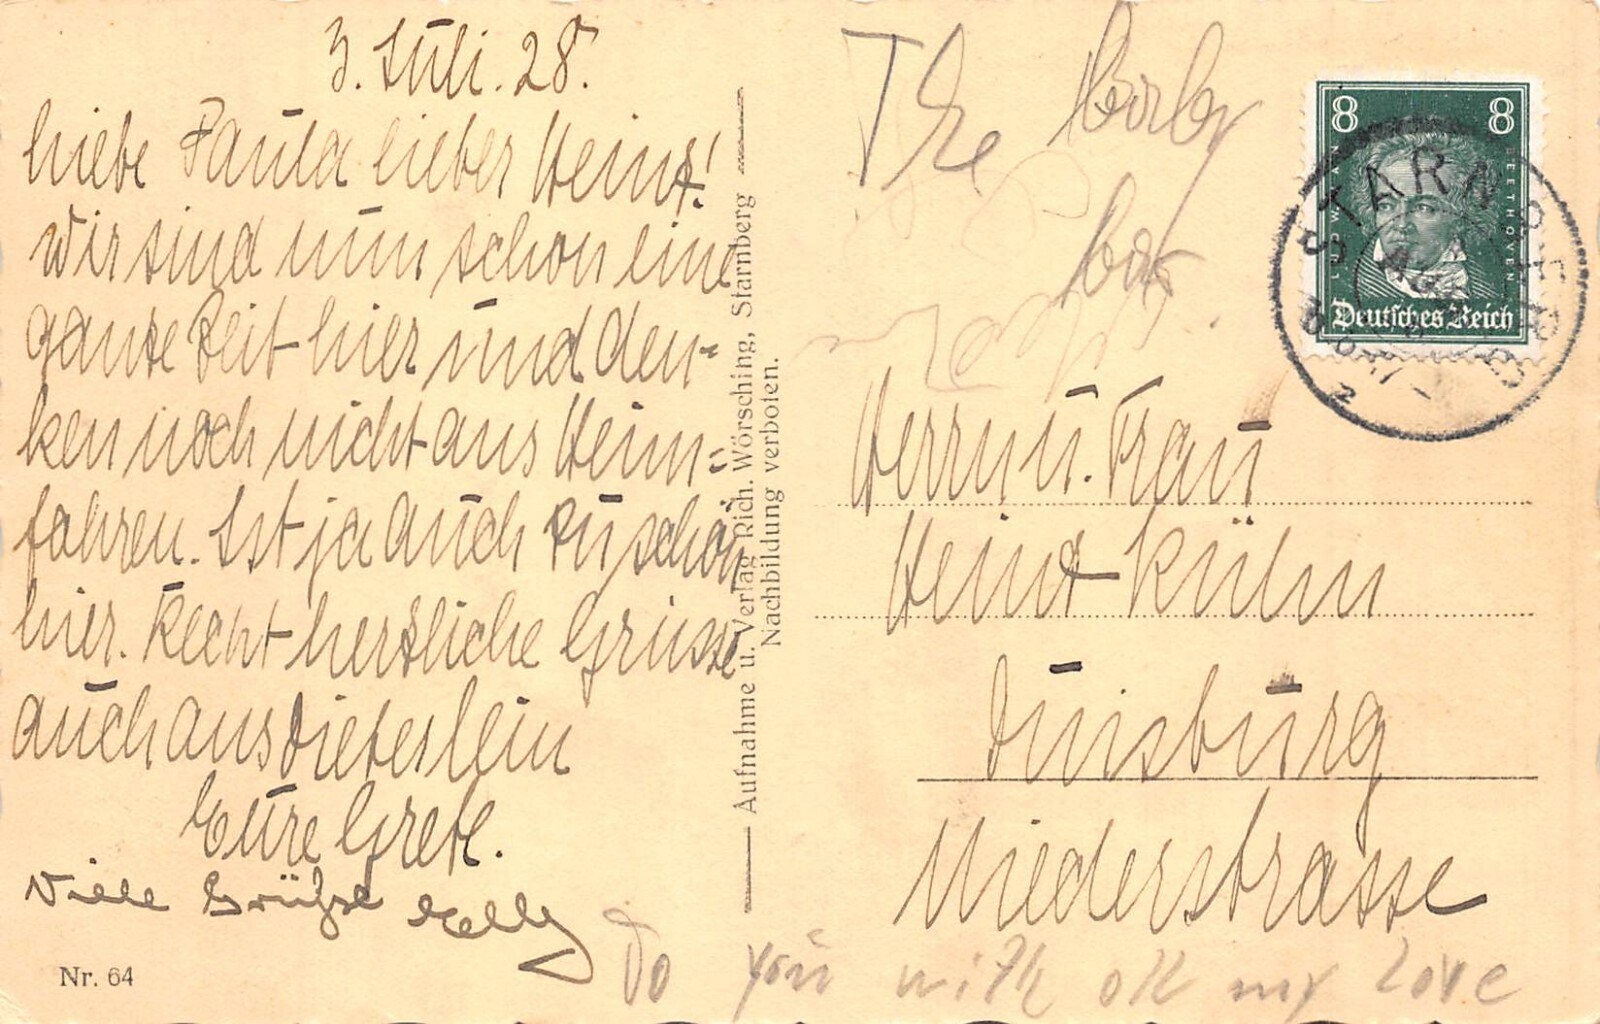 3. Juli. 28.
Liebe Paula lieber Heinz!
Wir sind nun schon eine
ganze Zeit hier und den-
ken noch nicht ans Heim-
fahren. Ist ja auch zu schön
hier. Recht herzliche Grüsse
auch ans Dieterlein
Eure Gretl.
Viele Grüße
Nr. 64
Aufnahme u. Verlag Rich. Wörsching, Starnberg
Nachbildung verboten.
8 8
LUDWIG VAN BEETHOVEN
Deutsches Reich
STARNBERG
2
The
Herrn u. Frau
Heinz Kühn
Duisburg
Niederstrasse
To you with all my Love